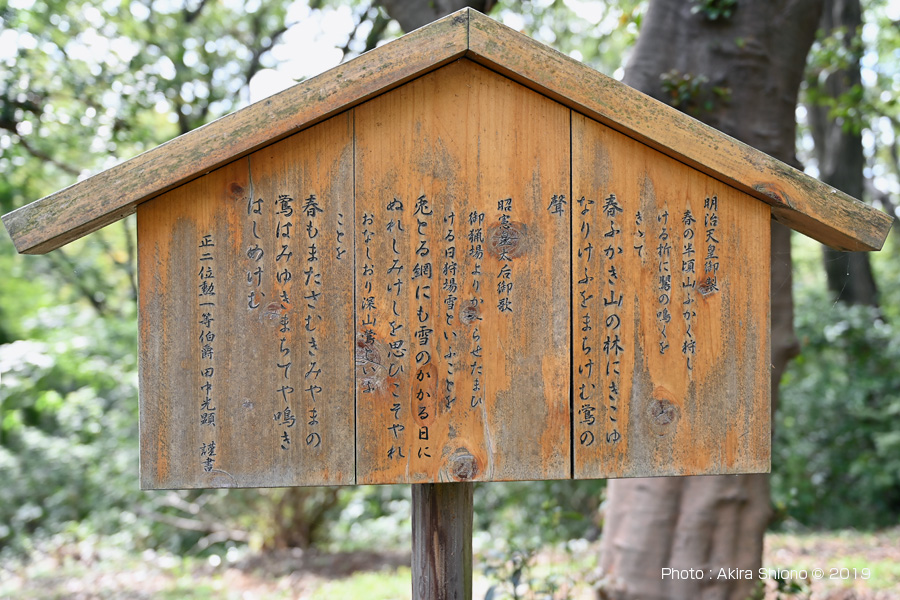 明治天皇御製
春の半頃山ふかく狩し
ける折に鶯の鳴くを
きゝて
春ふかき山の林にきこゆ
なりけふをまちけむ鶯の
聲
昭憲皇太后御歌
御獵場よりかへらせたまひ
ける日狩場雪といふことを
兎とる網にも雪のかかる日に
ぬれしみけしを思ひこそやれ
おなしおり深山鶯といふ
ことを
春もまたさむきみやまの
鶯はみゆきまちてや鳴き
はしめけむ
正二位勲一等伯爵田中光顕 謹書
Photo : Akira Shiono © 2019